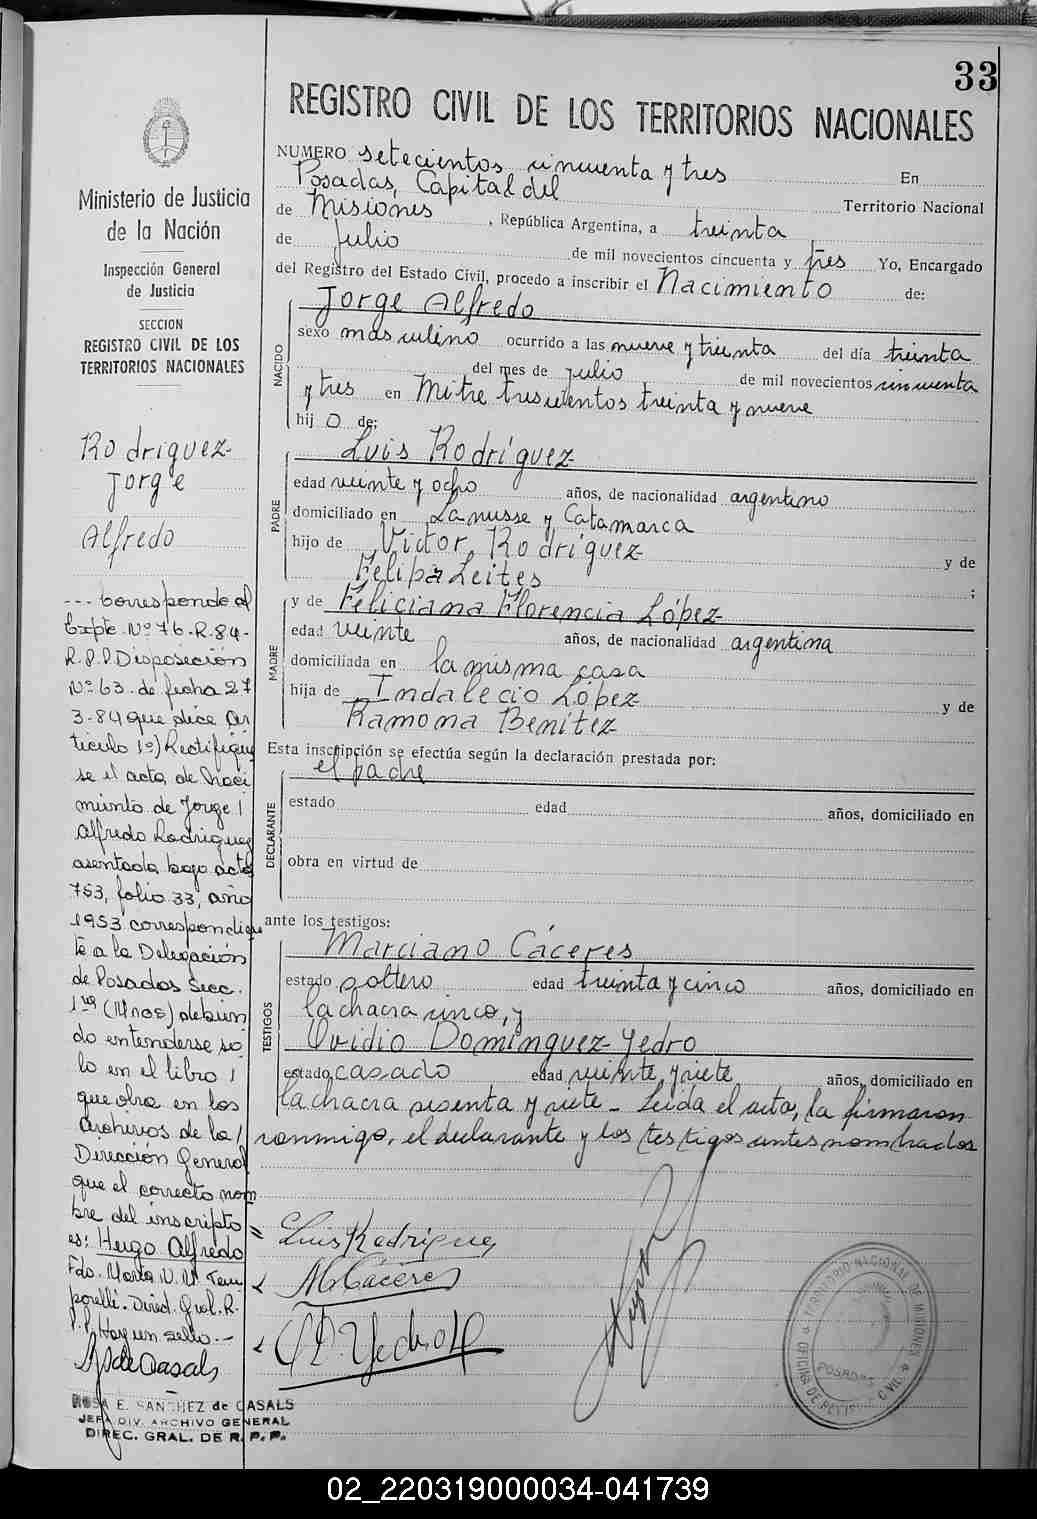 33
REGISTRO CIVIL DE LOS TERRITORIOS NACIONALES
NUMERO setecientos cincuenta y tres En
Posadas, Capital del Territorio Nacional
de Misiones, República Argentina, a treinta
de Julio de mil novecientos cincuenta y tres Yo, Encargado
del Registro del Estado Civil, procedo a inscribir el Nacimiento de:
NACIDO
Jorge Alfredo
sexo masculino ocurrido a las nueve y treinta del día treinta
del mes de julio de mil novecientos cincuenta
y tres en Mitre trescientos treinta y nueve
hij o de:
PADRE
Luis Rodríguez
edad veinte y ocho años, de nacionalidad argentino
domiciliado en Lanusse y Catamarca
hijo de Victor Rodríguez y de
Felipa Leites ;
MADRE
y de Feliciana Florencia López
edad veinte años, de nacionalidad argentina
domiciliada en la misma casa
hija de Indalecio López y de
Ramona Benítez
Esta inscripción se efectúa según la declaración prestada por:
DECLARANTE
el padre
estado edad años, domiciliado en
obra en virtud de
ante los testigos:
TESTIGOS
Marciano Cáceres
estado soltero edad treinta y cinco años, domiciliado en
la chacra cinco, y
Ovidio Domínguez Yedro
estado casado edad veinte y siete años, domiciliado en
la chacra sesenta y siete - Leída el acta, la firmaron
conmigo, el declarante y los testigos antes nombrados
Luis Rodriguez
M. Cáceres
O D. Yedro
TERRITORIO NACIONAL DE MISIONES
POSADAS
OFICINA DE REGISTRO CIVIL
Ministerio de Justicia
de la Nación
Inspección General
de Justicia
SECCION
REGISTRO CIVIL DE LOS
TERRITORIOS NACIONALES
Rodriguez-
Jorge
Alfredo
--- Corresponde al
Expte. Nº 76-R-84-
R.P.P. Disposición
Nº 63. de fecha 27
3-84 que dice Ar
tículo 1º) Rectifíque
se el acta de Naci
miento de Jorge /
Alfredo Rodriguez
asentada bajo acta
753, folio 33, año
1953 correspondien
te a la Delegación
de Posadas Secc.
1ra (Mnes) debien
do entenderse so
lo en el libro /
que obra en los
archivos de la /
Dirección General
que el correcto nom
bre del inscripto
es: Hugo Alfredo
Fdo. Marta Tem
porelli. Direct. Gral. R.
P.P. Hay un sello.-
de Casals
ROSA E. SANCHEZ de CASALS
JEFA DIV. ARCHIVO GENERAL
DIREC. GRAL. DE R. P. P.
02_220319000034-041739